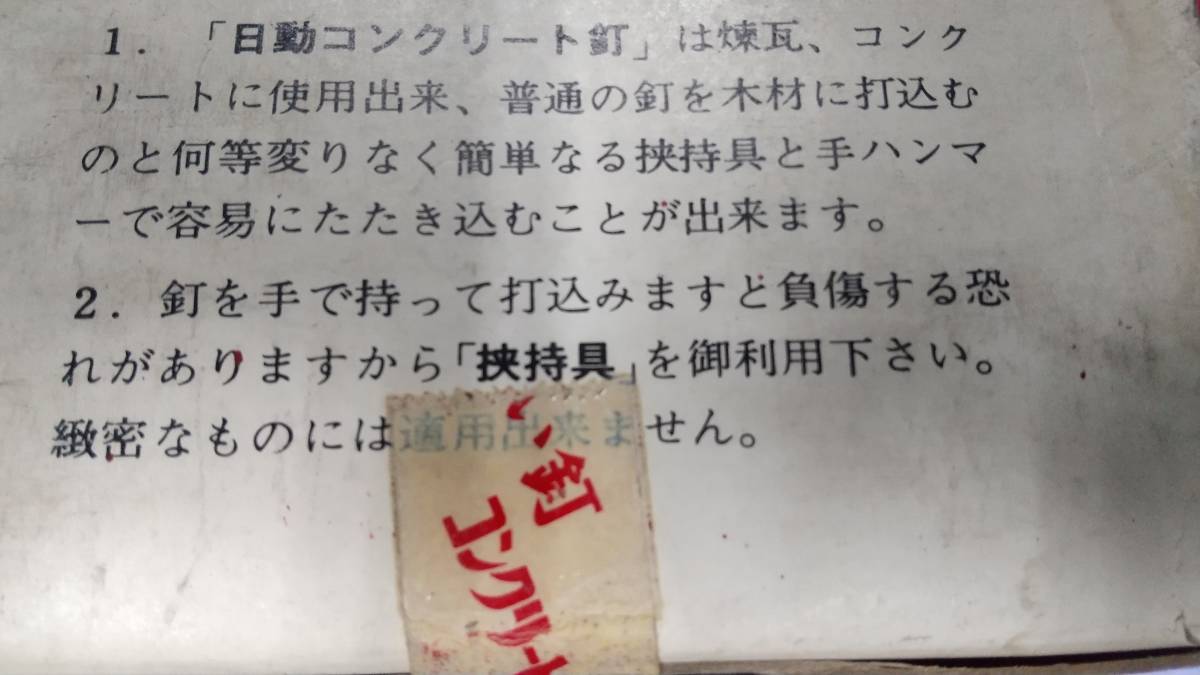 1. 「日動コンクリート釘」は煉瓦、コンク
リートに使用出来、普通の釘を木材に打込む
のと何等変りなく簡単なる挟持具と手ハンマ
ーで容易にたたき込むことが出来ます。
2. 釘を手で持って打込みますと負傷する恐
れがありますから「挟持具」を御利用下さい。
緻密なものには適用出来ません。
い釘
コンクリート